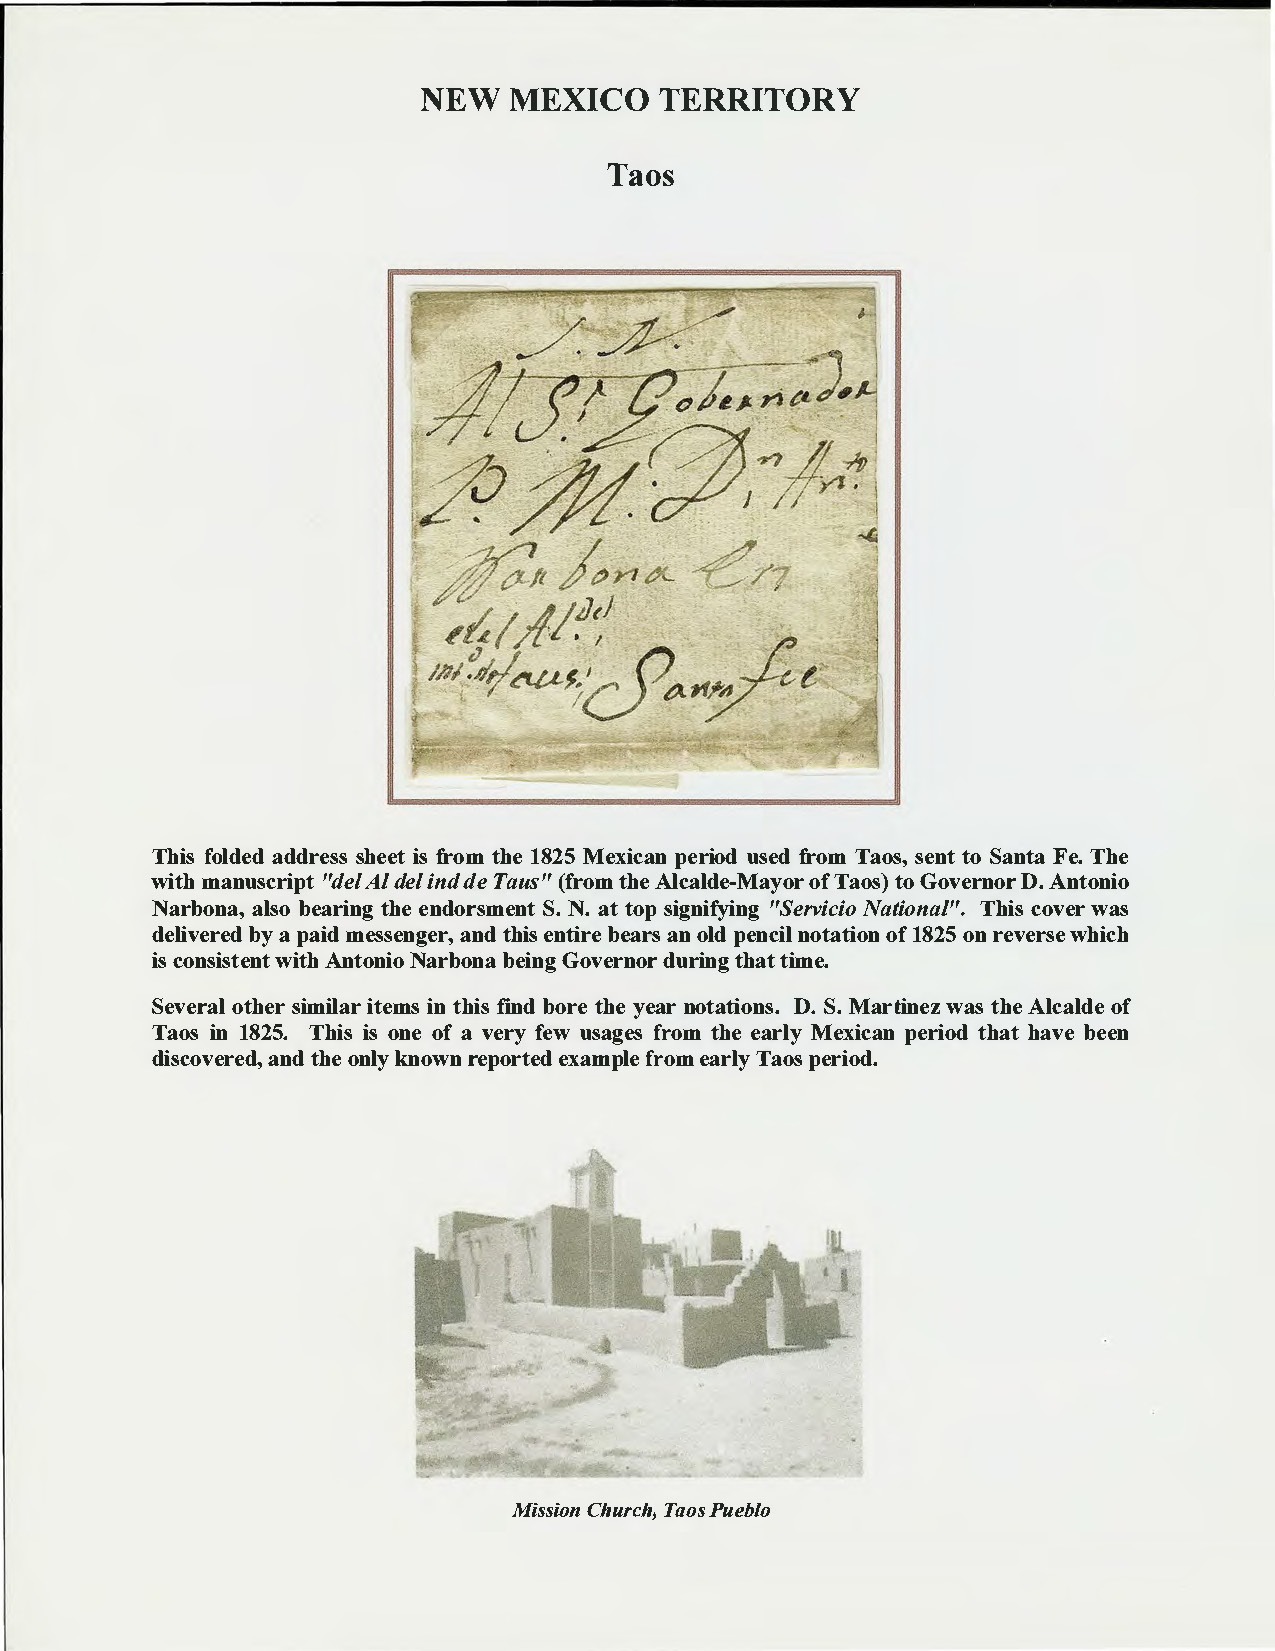 NEW MEXICO TERRITORY
Taos
S. N.
Al Sr. Gobernador
P. M. Dn. Anto.
Narbona En
del Al. del
de Taus; Santa Fee
This folded address sheet is from the 1825 Mexican period used from Taos, sent to Santa Fe. The
with manuscript "del Al del ind de Taus" (from the Alcalde-Mayor of Taos) to Governor D. Antonio
Narbona, also bearing the endorsment S. N. at top signifying "Servicio National". This cover was
delivered by a paid messenger, and this entire bears an old pencil notation of 1825 on reverse which
is consistent with Antonio Narbona being Governor during that time.
Several other similar items in this find bore the year notations. D. S. Martinez was the Alcalde of
Taos in 1825. This is one of a very few usages from the early Mexican period that have been
discovered, and the only known reported example from early Taos period.
Mission Church, Taos Pueblo